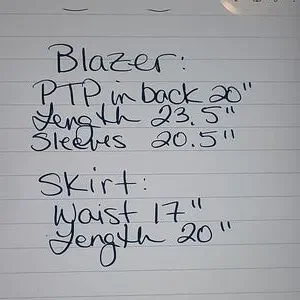 Blazer:
PTP in back 20"
Length 23.5"
Sleeves 20.5"
Skirt:
Waist 17"
Length 20"